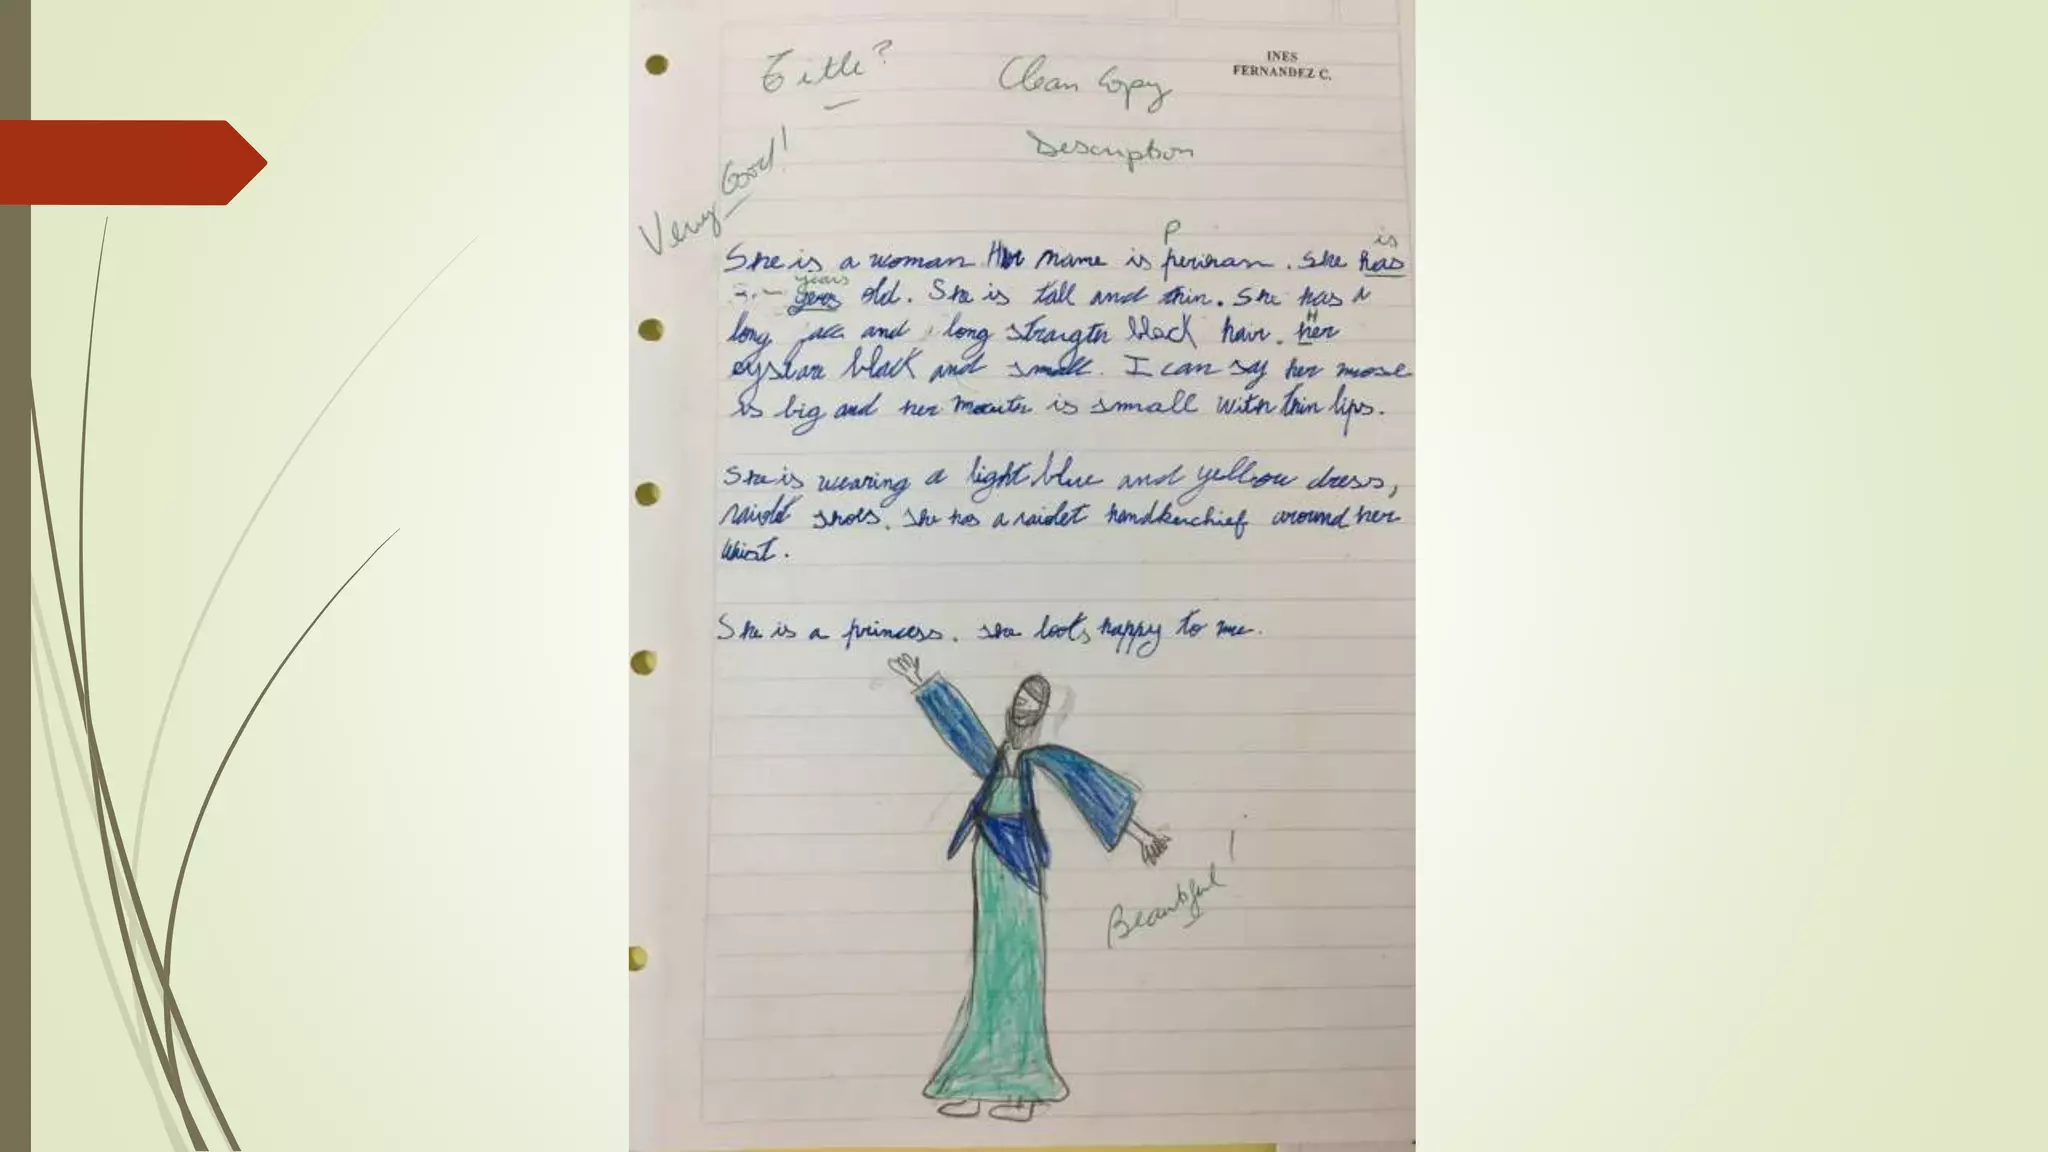 Title?
Clean Copy
INES
FERNANDEZ C.
Description
Very Good!
P
is
She is a woman Her name is periran. She has
years
years old. She is tall and thin. She has a
H
long face and long straigth black hair. her
eys are black and small. I can say her nose
is big and her mouth is small with thin lips.
She is wearing a light blue and yellow dress,
shoes. She has a handkerchief around her
waist.
She is a princess. She looks happy to me.
Beautiful!